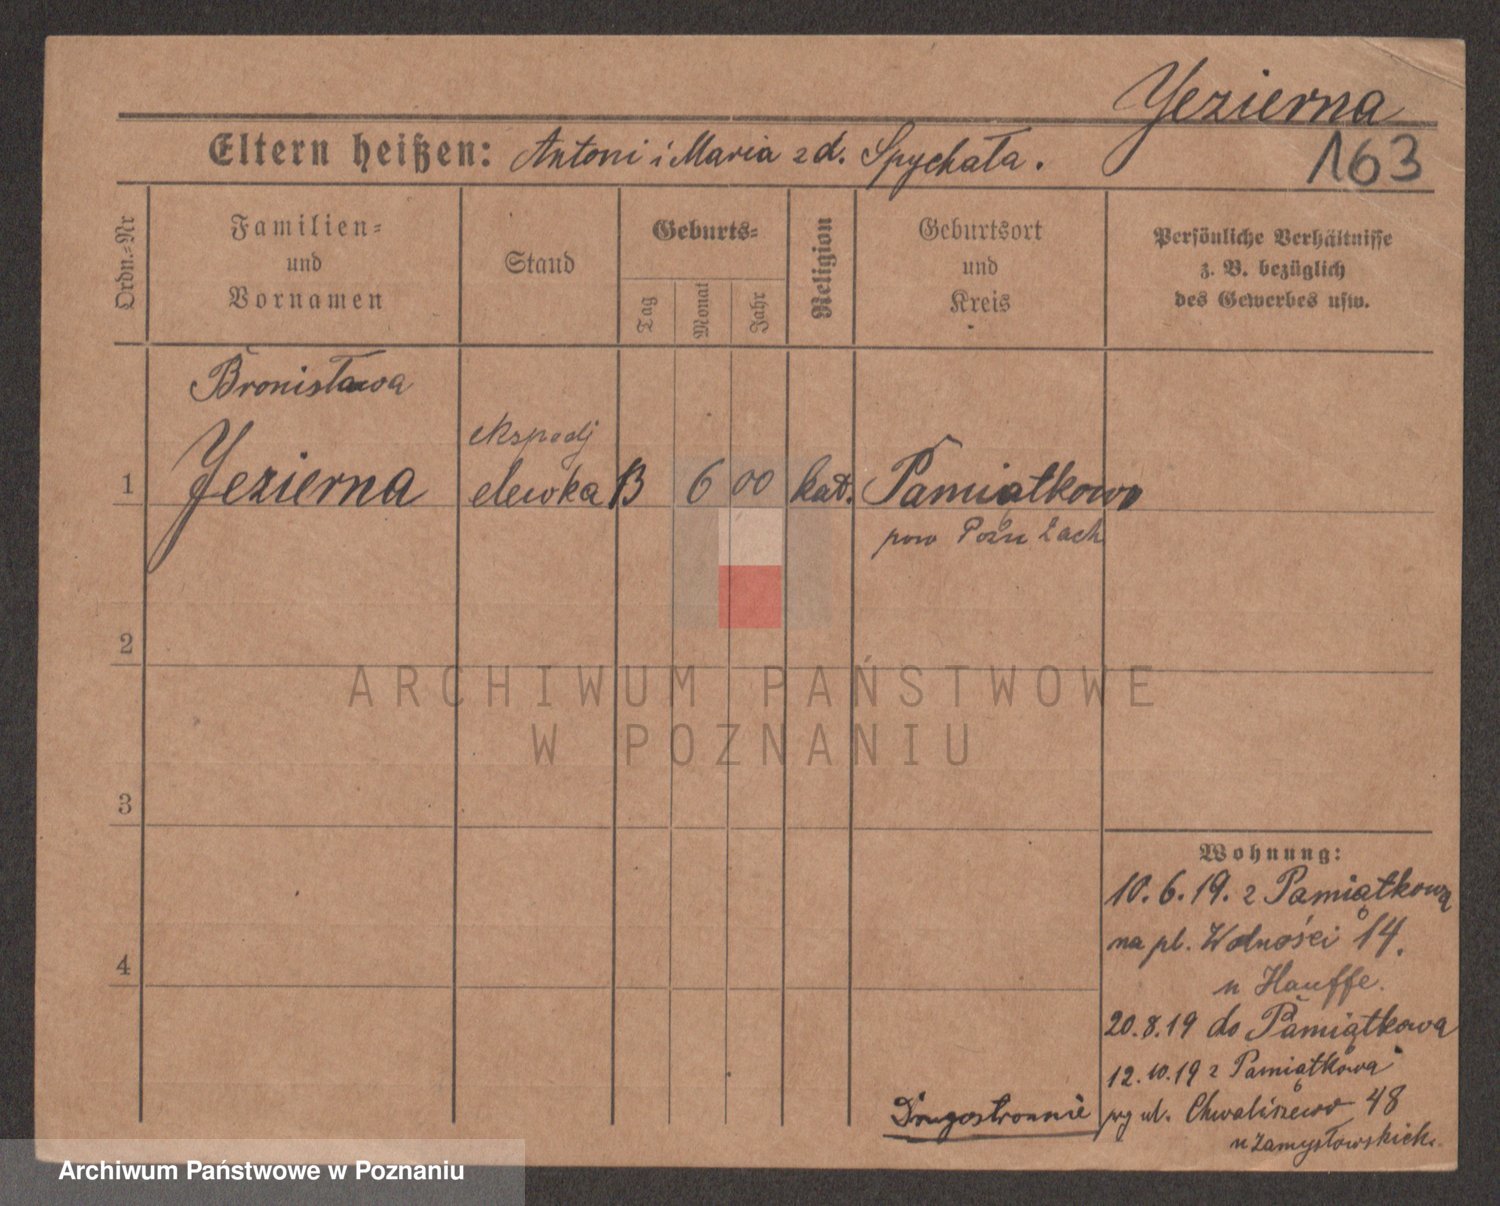 Jezierna
Eltern heißen: Antoni i Maria z d. Spychała.
163
Ordn.=Nr
Familien=
und
Vornamen
Stand
Geburts=
Tag
Monat
Jahr
Religion
Geburtsort
und
Kreis
Persönliche Verhältnisse
z. B. bezüglich
des Gewerbes usw.
Bronisława
ekspedj
1 Jezierna elewka 13 6 00 kat. Pamiątkowo
pow Pozn Zach
2
3
4
ARCHIWUM PAŃSTWOWE
W POZNANIU
Wohnung:
10.6.19. z Pamiątkowa
na pl. Wolności 14.
u Hauffe.
20.8.19 do Pamiątkowa
12.10.19 z Pamiątkowa
ul. Chwaliszewo 48
u Zamysłowskich.
Drugostronnie
Archiwum Państwowe w Poznaniu